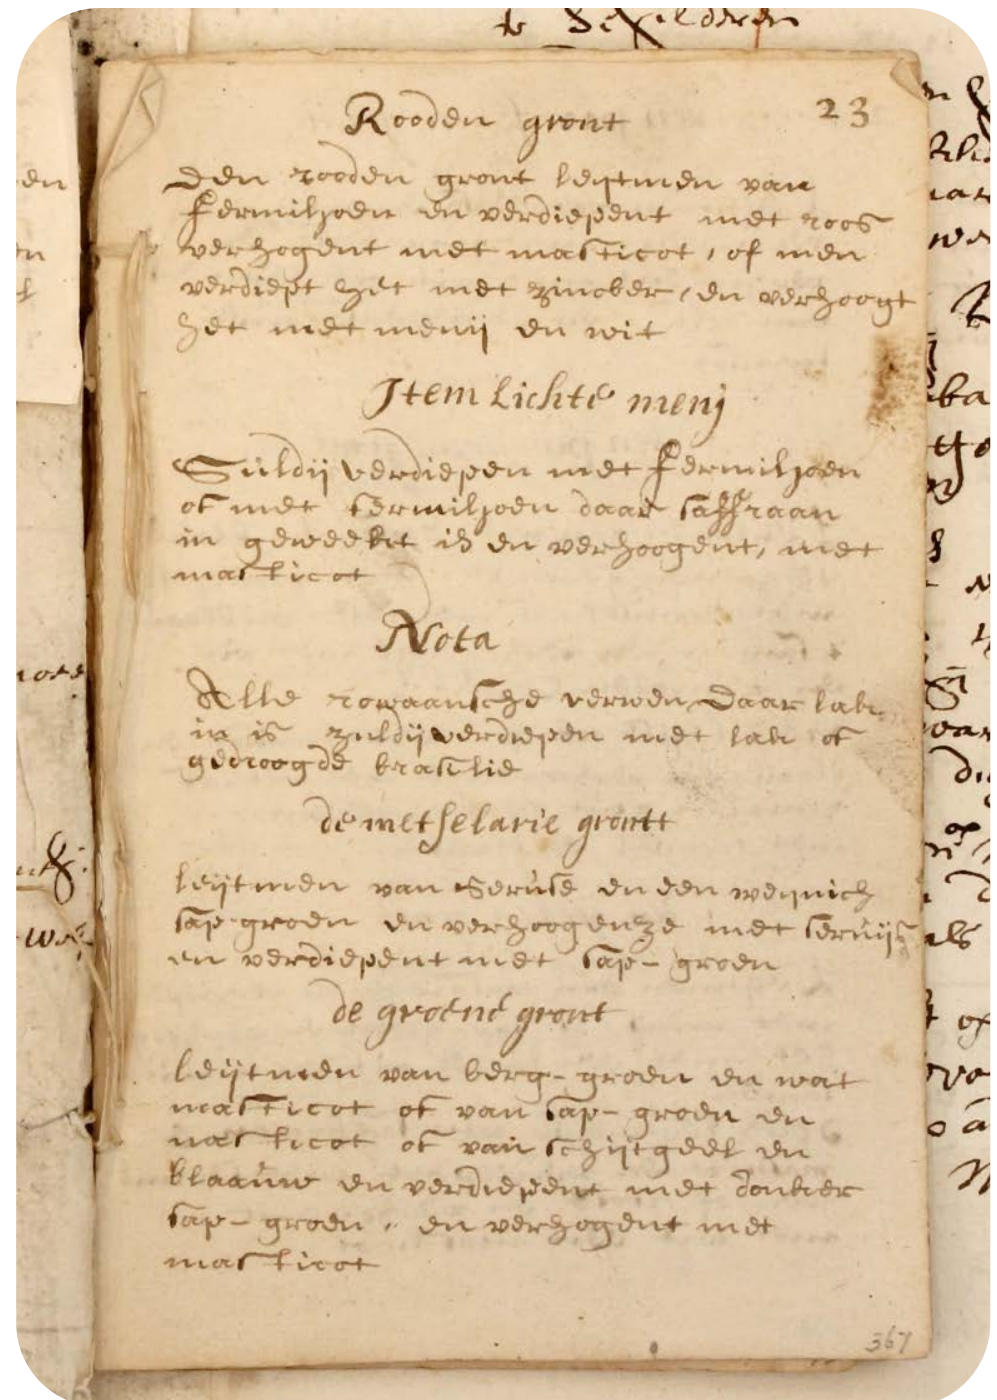 te Schilderen
23
Rooden gront
Den rooden gront leijtmen van
fermiljoen en verdiepent met roos
verhogent met masticot, of men
verdiept het met zinober, en verhoogt
het met menij en wit
Item Lichte menj
Suldij verdiepen met fermiljoen
of met fermiljoen daar saffraan
in geweekt is en verhoogent, met
masticot
Nota
Alle rowaansche verwen daar lak
in is zuldij verdiepen met lak of
gedroogde brasilie
de metselarie grontt
leijtmen van Seruse en een weijnich
sap-groen en verhoogenze met seruijs
en verdiepent met sap-groen
de groené gront
leijtmen van berg-groen en wat
masticot of van sap-groen en
masticot of van schijtgeel en
blaauw en verdiepent met donker
sap-groen, en verhogent met
masticot
367